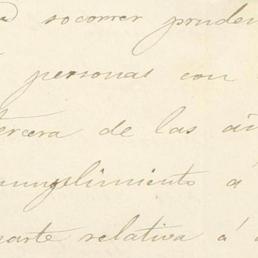 socorrer pruden
personal con
ercera de las
umplimiento a
parte relativa á